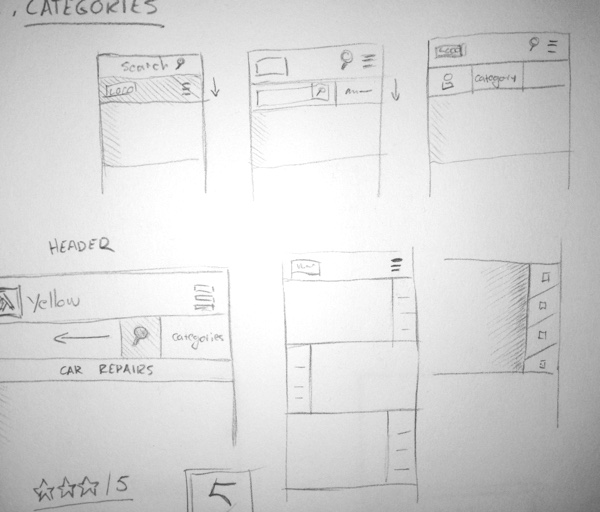 . CATEGORIES
Search
LOGO
Logo
category
HEADER
Yellow
categories
CAR REPAIRS
/5
5